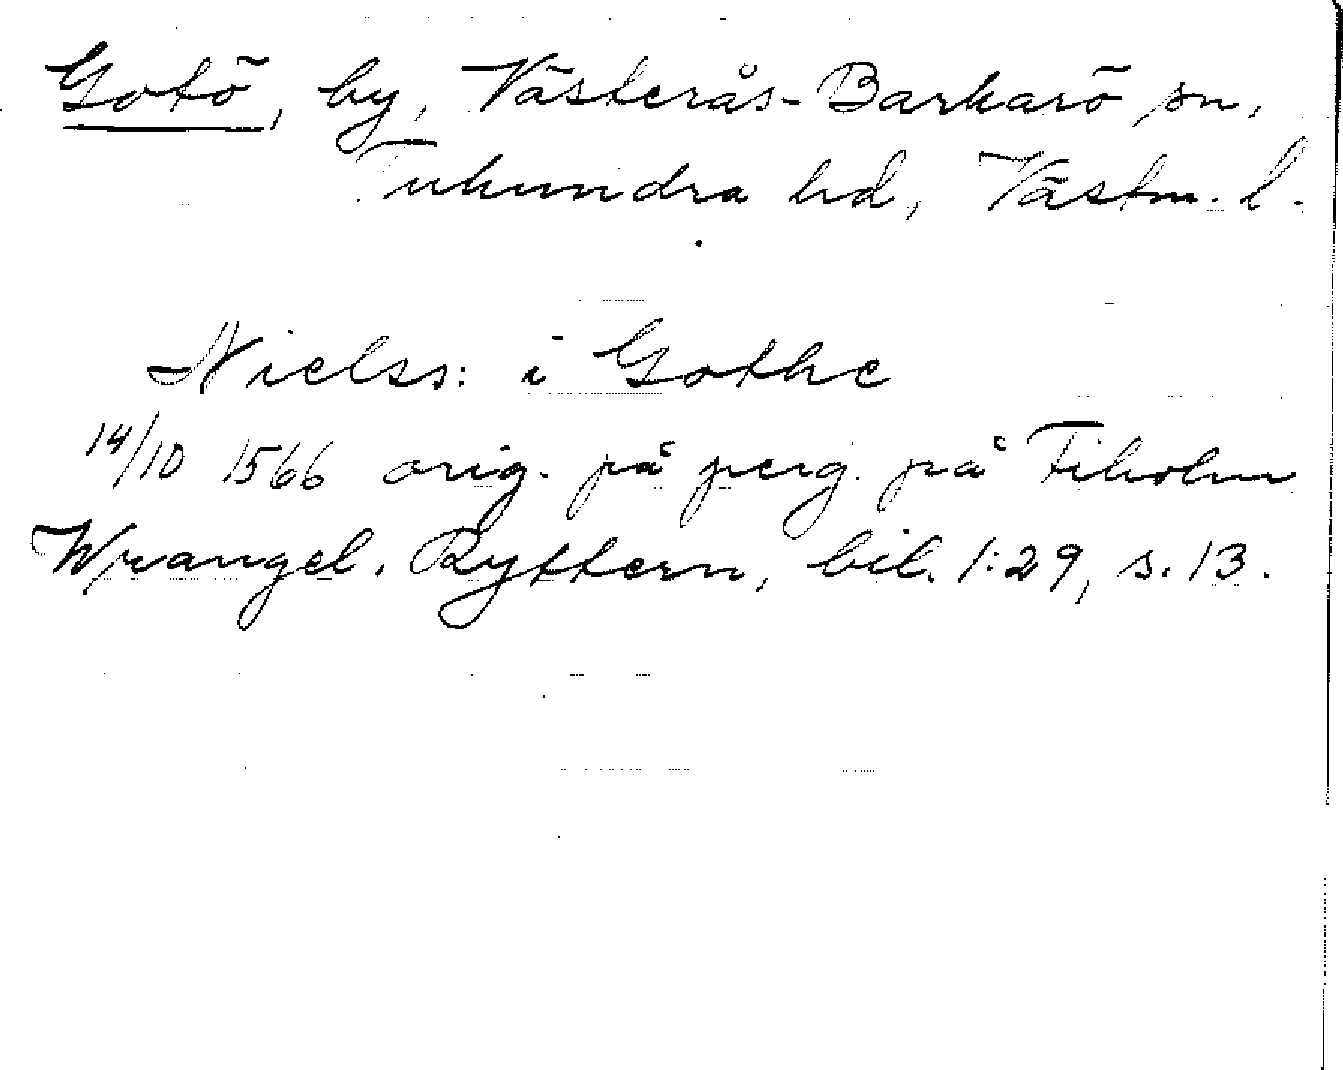 Gotö, by, Västerås-Barkarö sn,
Tuhundra hd, Västm. l.
Nielss: i Gothe
14/10 1566 orig. på perg. på Tiholm
Wrangel, Ryttern, bil. 1:29, s. 13.